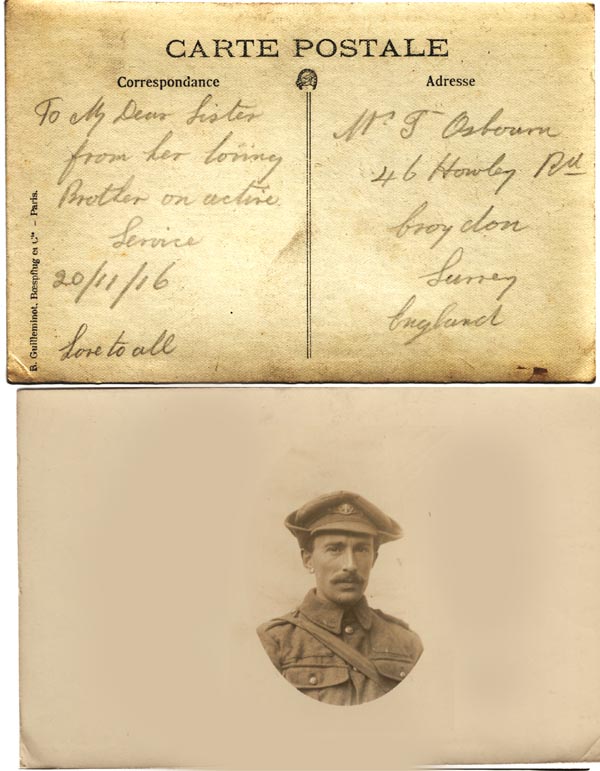 CARTE POSTALE
Correspondance
Adresse
To My Dear Sister
from her loving
Brother on active
Service
20/11/16
Love to all
Mrs T Osbourn
46 Howley Rd
Croydon
Surrey
England
B. Guilleminot, Bœspflug et Cie – Paris.